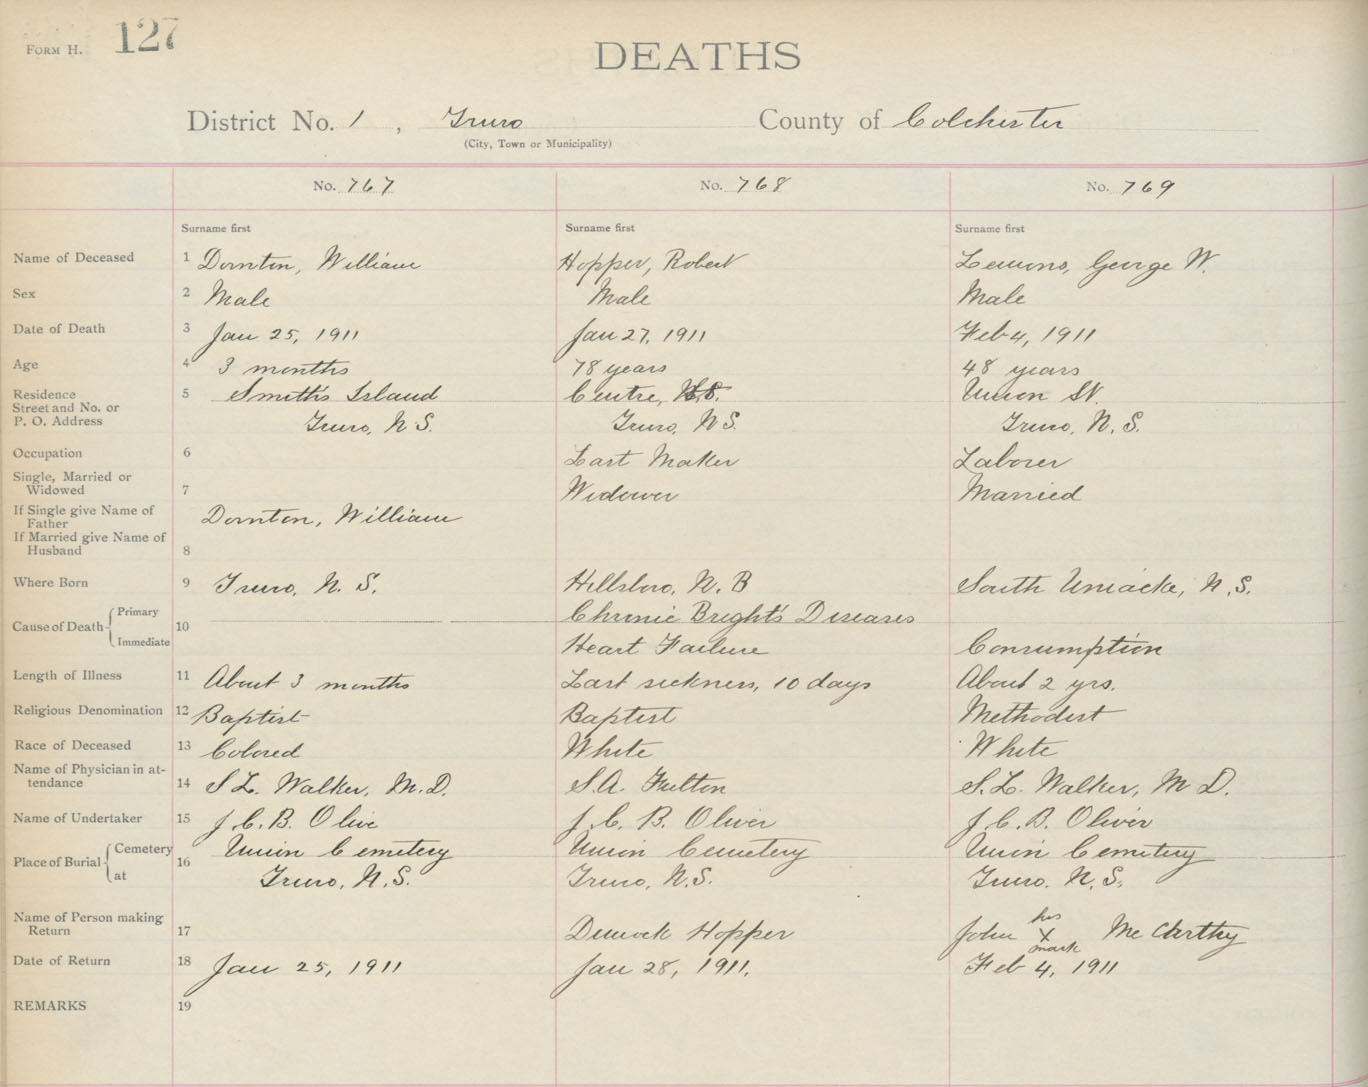 FORM H. 127
DEATHS
District No. 1, Truro County of Colchester
(City, Town or Municipality)
No. 767 No. 768 No. 769
Surname first Surname first Surname first
Name of Deceased 1 Dornton, William Hopper, Robert Lemons, George W.
Sex 2 Male Male Male
Date of Death 3 Jan 25, 1911 Jan 27, 1911 Feb 4, 1911
Age 4 3 months 78 years 48 years
Residence 5 Smith's Island Centre, St. Union St.
Street and No. or
P. O. Address Truro, N S. Truro, N S. Truro, N. S.
Occupation 6 Last Maker Laborer
Single, Married or
Widowed 7 Widower Married
If Single give Name of
Father Dornton, William
If Married give Name of
Husband 8
Where Born 9 Truro, N. S. Hillsboro, N. B South Uniacke, N. S.
Cause of Death Primary 10 Chronic Bright's Diseases
Immediate Heart Failure Consumption
Length of Illness 11 About 3 months Last sickness, 10 days About 2 yrs.
Religious Denomination 12 Baptist Baptist Methodist
Race of Deceased 13 Colored White White
Name of Physician in at-
tendance 14 S L. Walker, M. D. S. A. Fulton S. L. Walker, M D.
Name of Undertaker 15 J. C. B. Olive J. C. B. Oliver J. C. B. Oliver
Place of Burial Cemetery 16 Union Cemetery Union Cemetery Union Cemetery
at Truro, N. S. Truro, N. S. Truro. N. S.
Name of Person making his
Return 17 Hopper John X McCarthy
mark
Date of Return 18 Jan 25, 1911 Jan 28, 1911. Feb 4, 1911
REMARKS 19